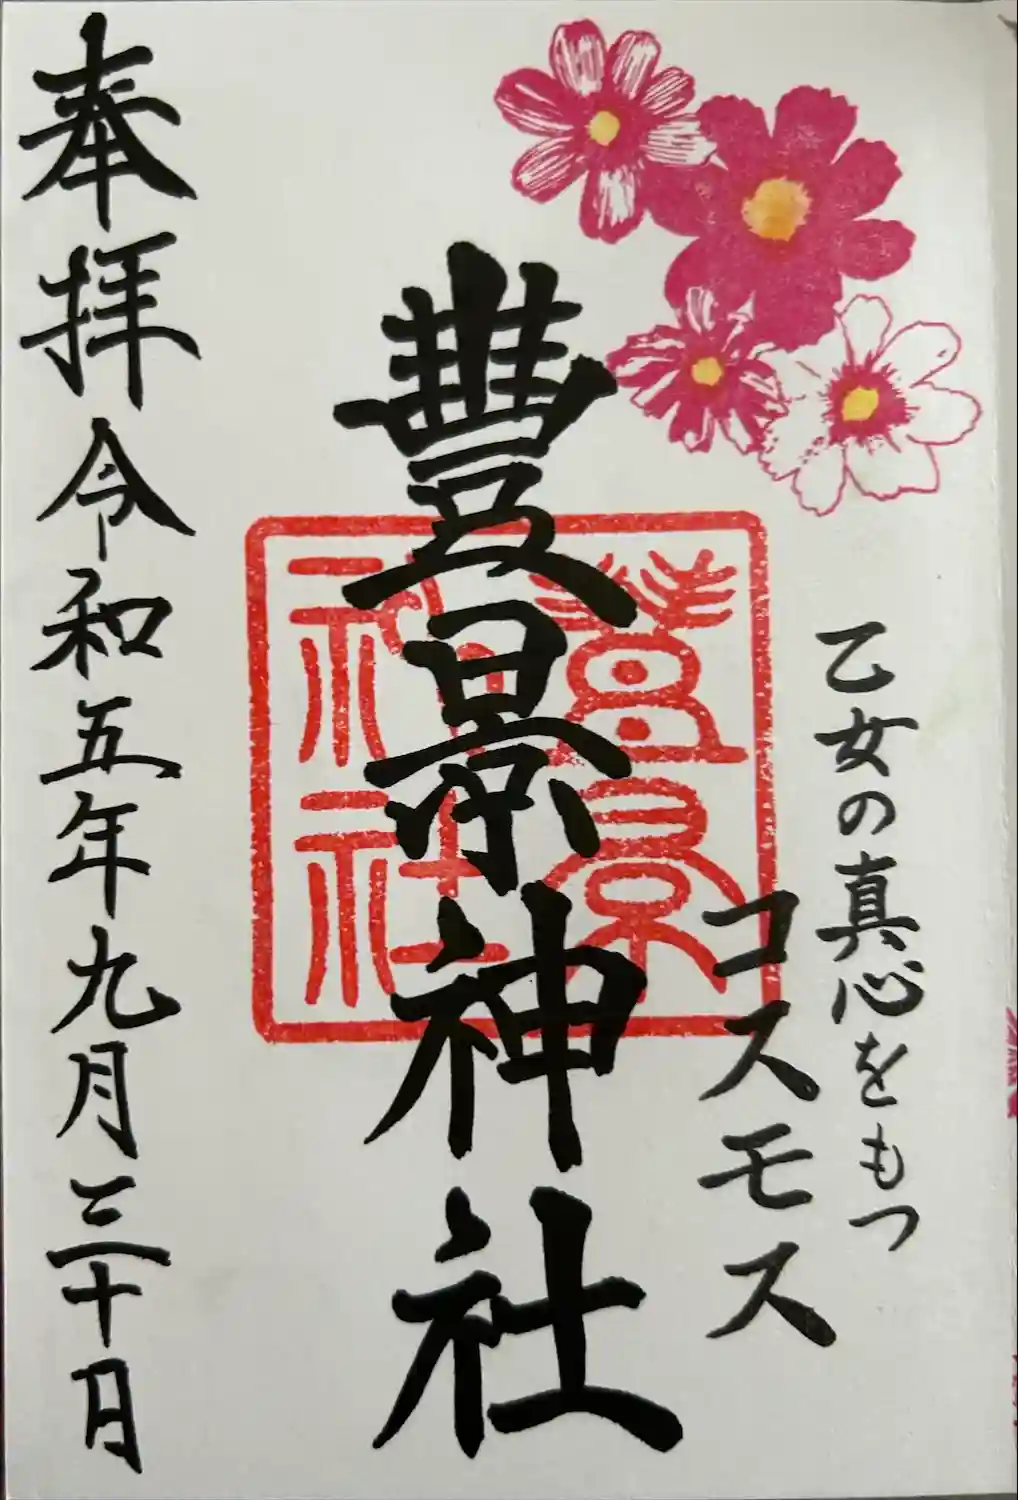 乙女の真心をもつ
コスモス
豐景神社
豐景神社
奉拝 令和五年九月三十日